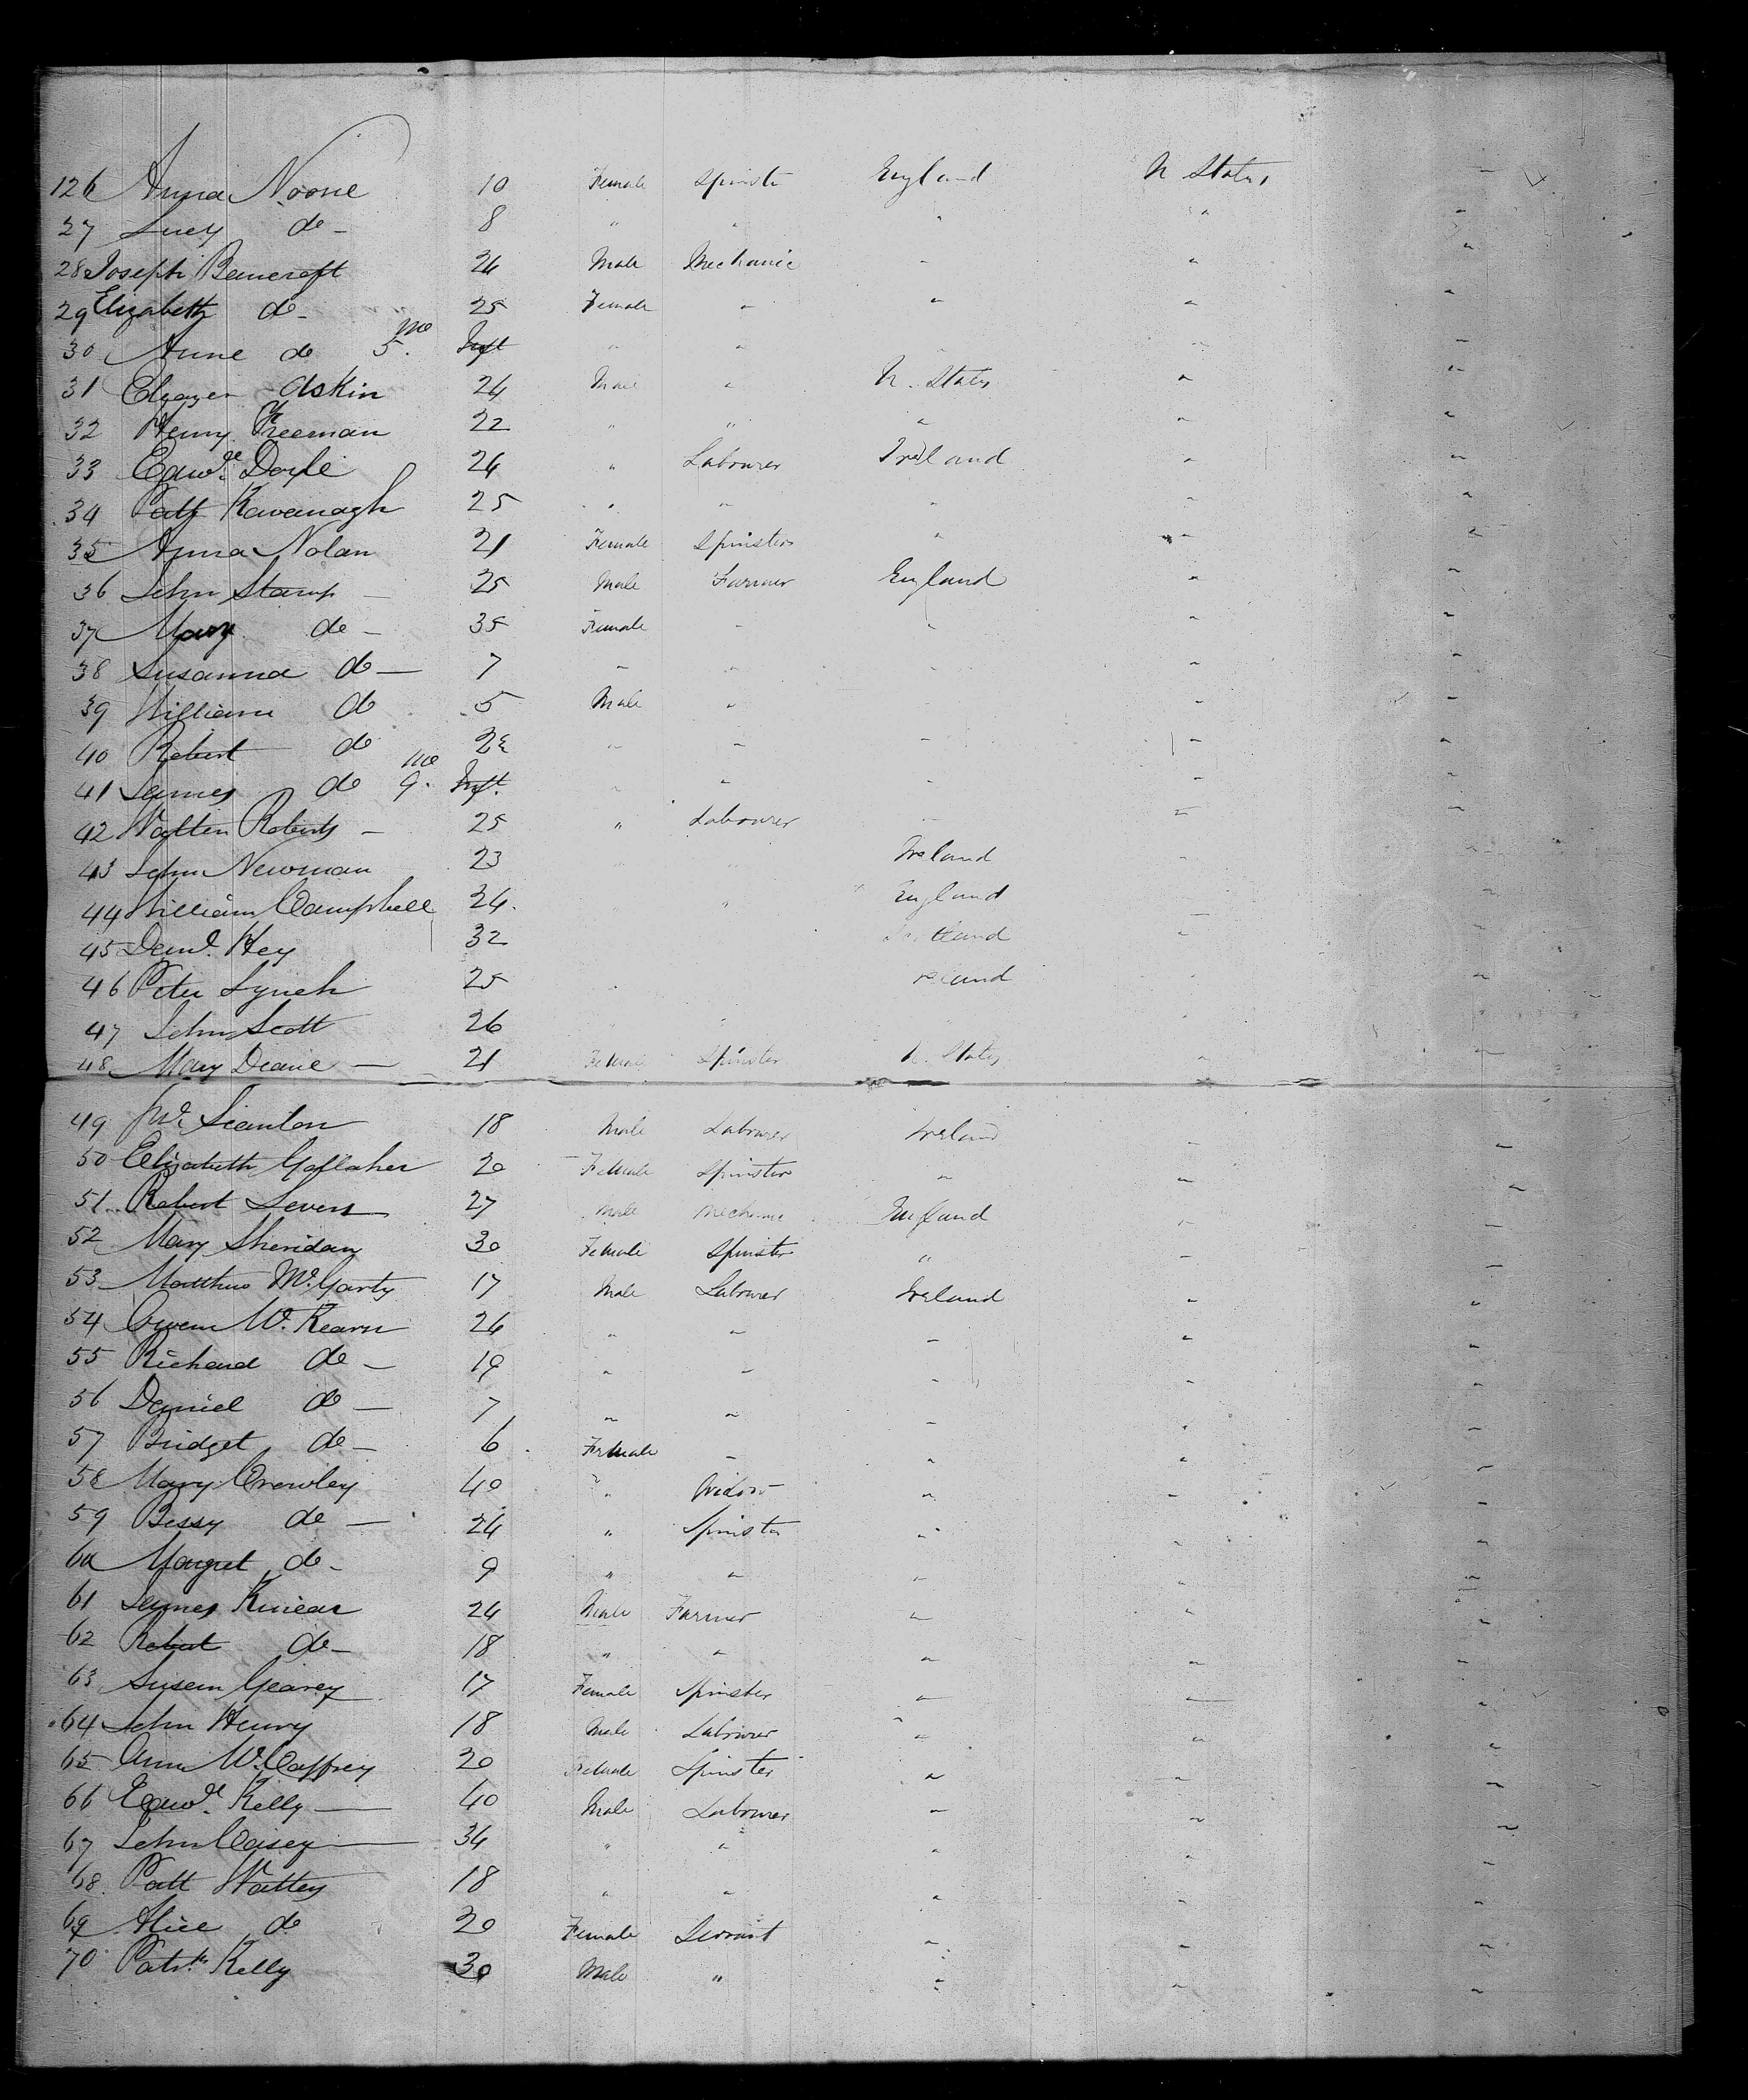 126 Anna Noone 10 Female Spinster England U States
27 Lucy do - 8 " " " "
28 Joseph Bancroft 24 Male Mechanic - "
29 Elizabeth do - 25 Female " " "
30 Anne do 5. mo Inft " "
31 Askin 24 Male " U. States "
32 Henry Freeman 22 " " " "
33 Edwd. Doyle 24 " Labourer Ireland "
34 Patk Kavanagh 25 " " " "
35 Anna Nolan 21 Female Spinster " "
36 John Stamp - 25 Male Farmer England "
37 Mary do - 35 Female " " "
38 Susanna do - 7 " " " "
39 William do 5 Male " " "
40 Robert do " " " "
41 James do 9. mo Inft. " " " "
42 Roberts - 25 " Labourer " "
43 John Newman 23 " " Ireland "
44 William Campbell 24. " England "
45 Hey 32 Scotland "
46 Peter Lynch 25 Ireland
47 John Scott 26
48 Mary Deane - 21 Female Spinster U. States "
49 Jno. Scanlon 18 Male Labourer Ireland "
50 Elizabeth Gallaher 20 Female Spinster " "
51 Robert Severs 27 Male Mechanic England "
52 Mary Sheridan 30 Female Spinster " "
53 Matthew McGarty 17 Male Labourer Ireland "
54 Owen McKearn 24 " " " "
55 Richard do - 19 " " " "
56 Daniel do - 7 " " " "
57 Bridget do - 6 Female " " "
58 Mary Crowley 40 " Widow " "
59 Bessy do - 24 " Spinster " "
60 Margret do - 9 " " " "
61 James Kinear 24 Male Farmer " "
62 Robert do - 18 " " " "
63 Susan Gearey 17 Female Spinster " "
64 John Henry 18 Male Labourer " "
65 Ann McCaffrey 20 Female Spinster " "
66 Edwd. Kelly - 40 Male Labourer " "
67 John Casey - 34 " " " "
68 Patt 18 " " " "
69 Alice do 20 Female Servant " "
70 Patrk. Kelly 30 Male " " "